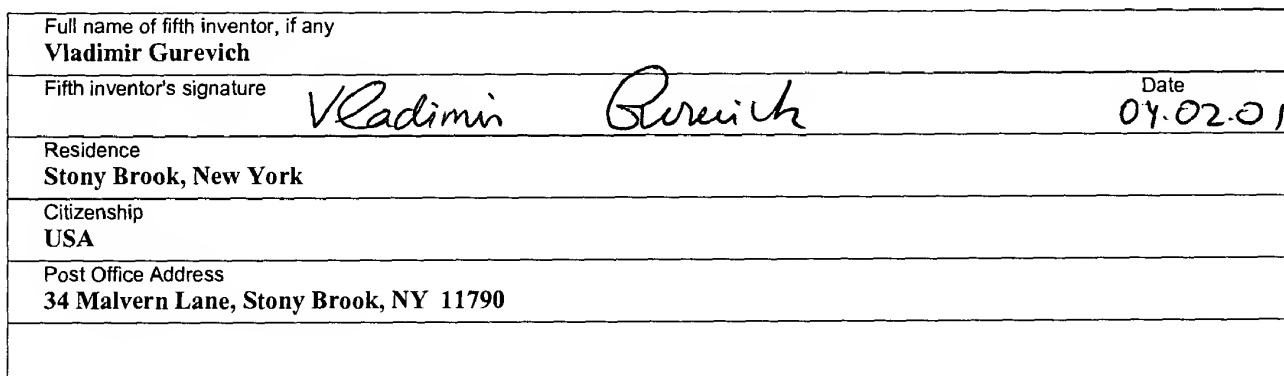 Full name of fifth inventor, if any
Vladimir Gurevich
Fifth inventor's signature Vladimir Gurevich Date
04.02.01
Residence
Stony Brook, New York
Citizenship
USA
Post Office Address
34 Malvern Lane, Stony Brook, NY 11790